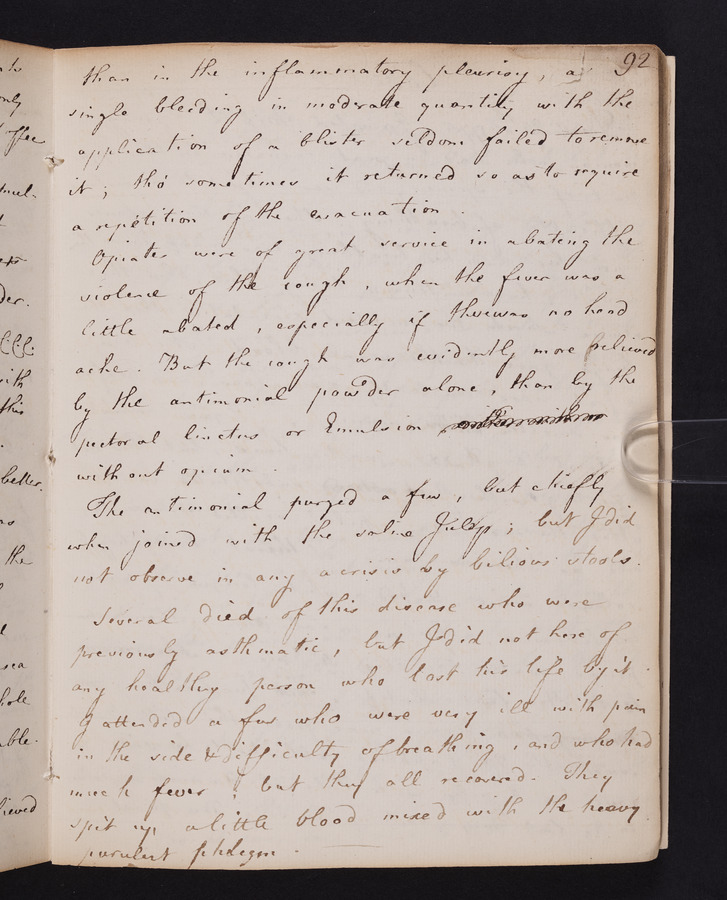 92
than in the inflammatory pleurisy, a
single bleeding in moderate quantity with the
application of a blister seldom failed to remove
it; tho' sometimes it returned so as to require
a repetition of the evacuation.
Opiates were of great service in abating the
violence of the cough, when the fever was a
little abated, especially if there was no head
ache. But the cough was evidently more relieved
by the antimonial powder alone, than by the
pectoral linctus or Emulsion
without opium.
The antimonial purged a few, but chiefly
when joined with the saline Julep; but I did
not observe in any a crisis by bilious stools.
Several died of this disease who were
previously asthmatic, but I did not hear of
any healthy person who lost his life by it.
I attended a few who were very ill with pain
in the side & difficulty of breathing, and who had
much fever; but they all recovered. They
spit up a little blood mixed with the heavy
purulent phlegm.